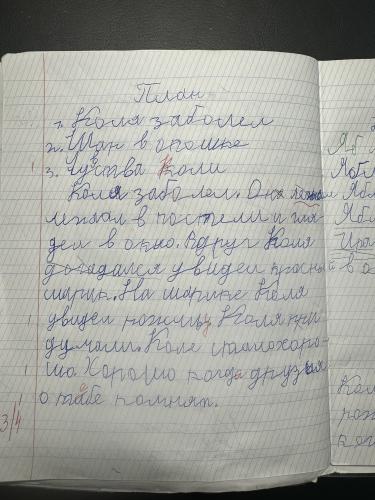 План
1. Коля заболел
2. Шар в окошке
3. Чуства Коли
Коля заболел. Он
лежал в постели и гля
дел в окно. Вдруг Коля
догадался увидел красный
шарик. На шарике Коля
увидел рожицу. Коля
думали. Коле стало хоро-
шо. Хорошо когда друзья
о тебе помнят.
3/4